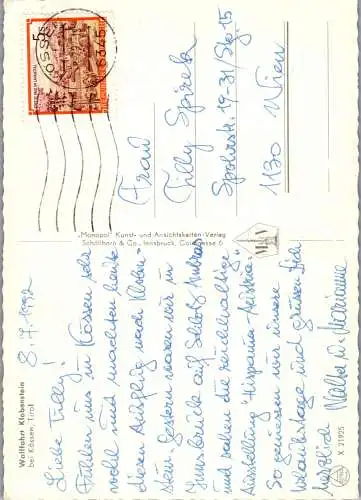 Wallfahrt Klobenstein
bei Kössen, Tirol
8.7.1992
Liebe Tilly!
Fühlen uns in Kössen sehr
wohl und machten heute
diesen Ausflug nach Kloben-
stein. Gestern waren wir in
Innsbruck auf Schloß Ambras
und sahen die reichhaltige
Ausstellung "Hispania-Austria".
So genießen wir unsere
Urlaubstage und grüßen Dich
herzlich Walter u. Marianne
"Monopol" Kunst- und Ansichtskarten-Verlag
Schöllhorn & Co., Innsbruck,
X 21925
5S
6345
Frau
Tilly Spirek
19-31/Stg. 15
1130 Wien